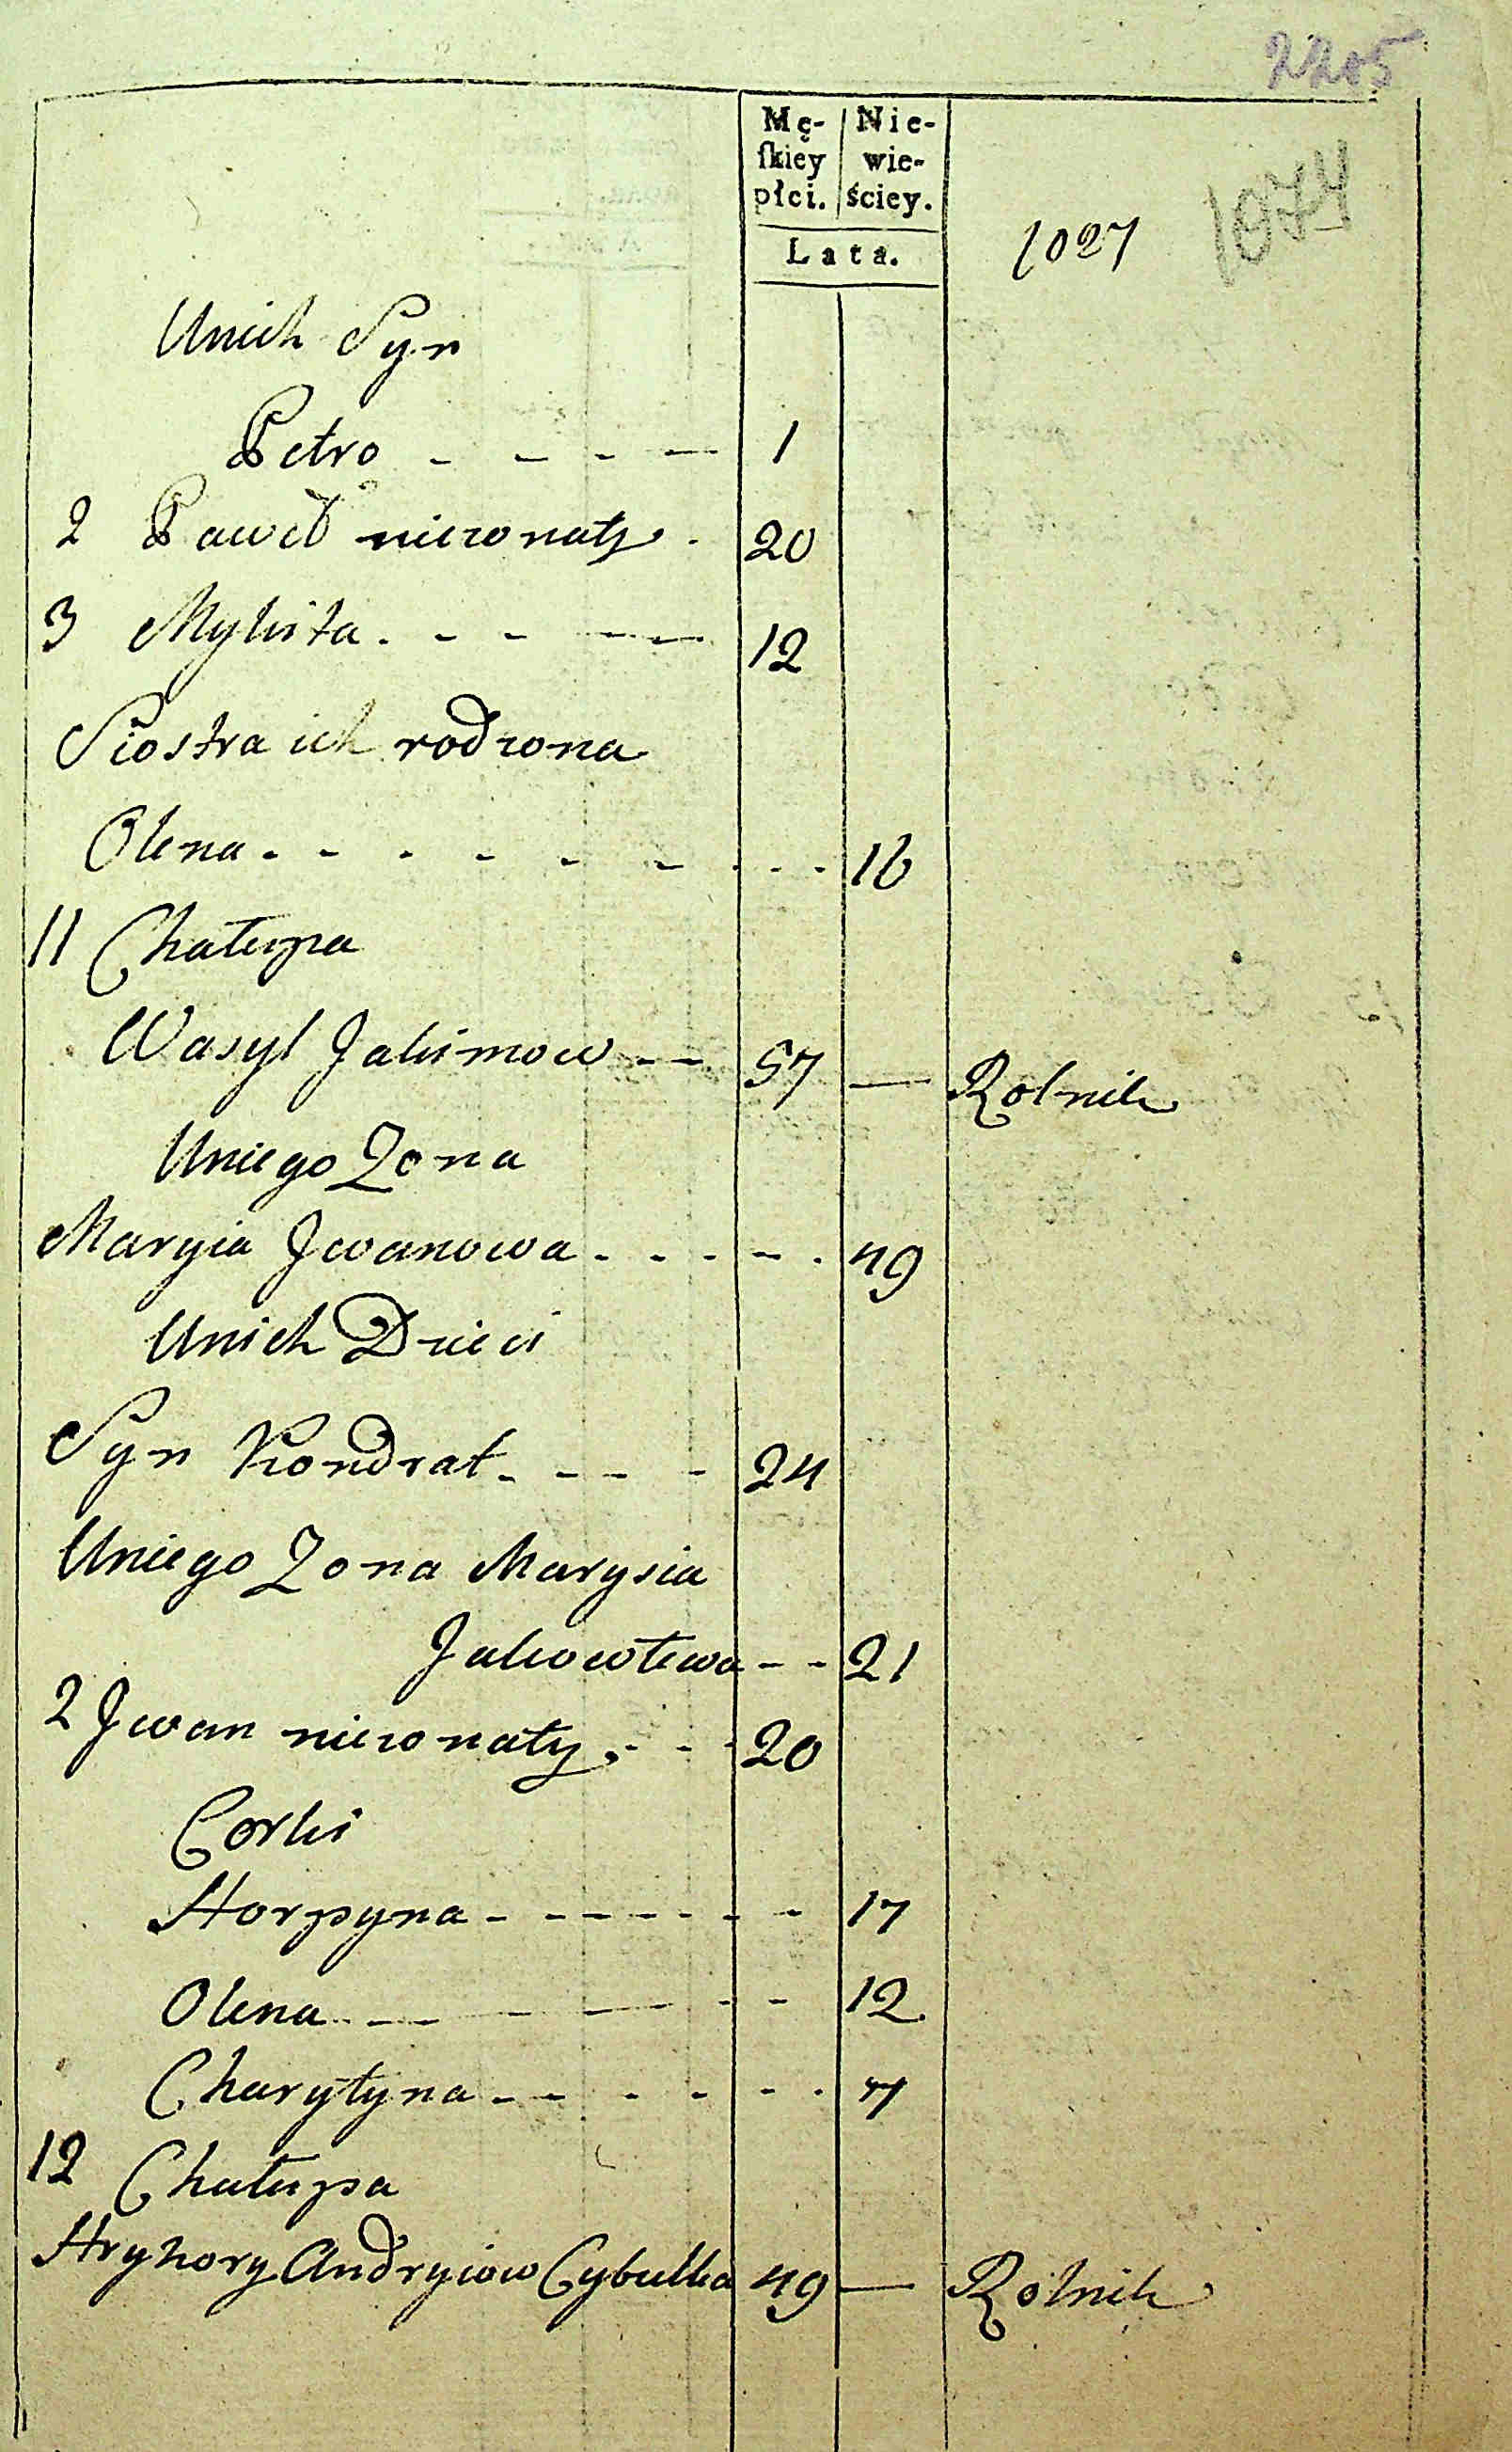 2205
Mę- Nie-
ſkiey wie-
płci. ściey.
Lata.
1027 1074
Unich Syn
Petro - - - - 1
2 Paweł niezonaty - 20
3 Mykita - - - - 12
Siostra ich rodzona
Olena - - - - - - - - 16
11 Chałupa
Wasyl Jakimow - - 57 — Rolnik
Uniego Zona
Maryia Jwanowa - - - - - 49
Unich Dzieci
Syn Kondrat - - - - 24
Uniego Zona Marysia
Jakowlewa - - 21
2 Jwan niezonaty - - - 20
Corki
Horpyna - - - - - - - 17
Olena - - - - - - 12
Charytyna - - - - - - 7
12 Chałupa
Hryhory Andryiow Cybulka 49 — Rolnik